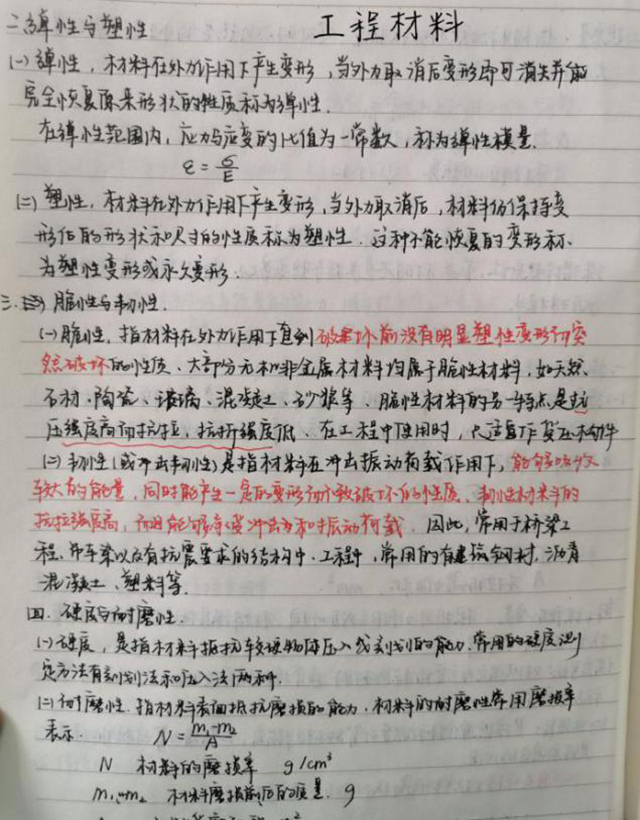 工程材料
二、弹性与塑性
(一)弹性，材料在外力作用下产生变形，当外力取消后变形即可消失并能
完全恢复原来形状的性质称为弹性.
在弹性范围内，应力与应变的比值为一常数，称为弹性模量.
ε=σ/E
(二)塑性，材料在外力作用下产生变形，当外力取消后，材料仍保持变
形后的形状和尺寸的性质称为塑性.这种不能恢复的变形称
为塑性变形或永久变形.
三. 脆性与韧性.
(一)脆性，指材料在外力作用下直到破坏前没有明显塑性变形而突
然破坏的性质、大部分无机非金属材料均属于脆性材料，如天然
石材、陶瓷、玻璃、混凝土、砂浆等、脆性材料的另一特点是抗
压强度高而抗拉，抗折强度低、在工程中使用时，只适宜作受压构件
(二)韧性(或冲击韧性)是指材料在冲击振动荷载作用下，能够吸收
较大的能量，同时能产生一定的变形而不致破坏的性质、韧性材料的
抗拉强度高，而且能够承受冲击力和振动荷载.因此，常用于桥梁工
程、吊车梁以及有抗震要求的结构中.工程中，常用的有建筑钢材、沥青
混凝土、塑料等.
四. 硬度与耐磨性.
(一)硬度，是指材料抵抗较硬物体压入或刻划的能力.常用的硬度测
定方法有刻划法和压入法两种.
(二)耐磨性.指材料表面抵抗磨损的能力，材料的耐磨性常用磨损率
表示. N=(m₁-m₂)/A
N 材料的磨损率 g/cm²
m₁, m₂ 材料磨损前后的质量. g